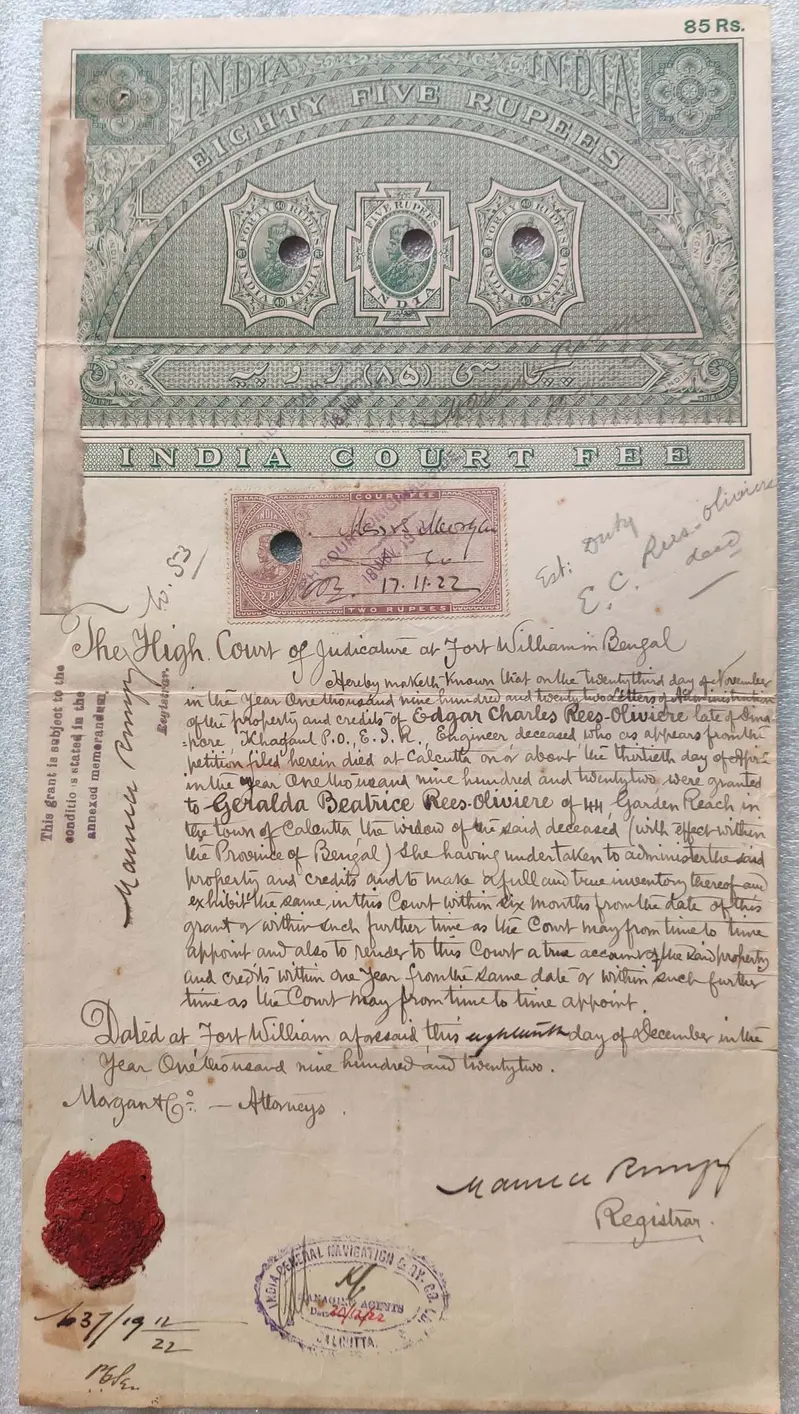 85 Rs.
INDIA INDIA
EIGHTY FIVE RUPEES
FORTY RUPEES
INDIA INDIA
FIVE RUPEES
INDIA
FORTY RUPEES
INDIA INDIA
پچاسی (۸۵) روپیہ
INDIA COURT FEE
COURT FEE
Messrs Morgan
& Co
17.11.22
TWO RUPEES
Est: Duty
E. C. Rees-Oliviere
decd
No. 53
The High Court of Judicature at Fort William in Bengal
Hereby maketh Known that on the twentythird day of November
in the Year One thousand nine hundred and twentytwo Letters of Administration
of the property and credits of Edgar Charles Rees-Oliviere late of Dina
-pore Khagaul P.O., E.I.R., Engineer deceased, who as appears from the
petition filed herein died at Calcutta on or about the thirtieth day of April
in the Year One thousand nine hundred and twentytwo were granted
to Geralda Beatrice Rees-Oliviere of 44, Garden Reach in
the town of Calcutta the widow of the said deceased (with effect within
the Province of Bengal) she having undertaken to administer the said
property and credits and to make a full and true inventory thereof and
exhibit the same in this Court within six months from the date of this
grant or within such further time as the Court may from time to time
appoint and also to render to this Court a true account of the said property
and credits within one Year from the same date or within such further
time as the Court may from time to time appoint.
Dated at Fort William aforesaid, this eighteenth day of December in the
Year One thousand nine hundred and twentytwo.
Morgan & Co. — Attorneys.
This grant is subject to the
conditions stated in the
annexed memorandum,
Registrar.
Registrar.
INDIA GENERAL NAVIGATION & RY. CO. LD.
MANAGING AGENTS
20/12/22
CALCUTTA.
637/19 12/22